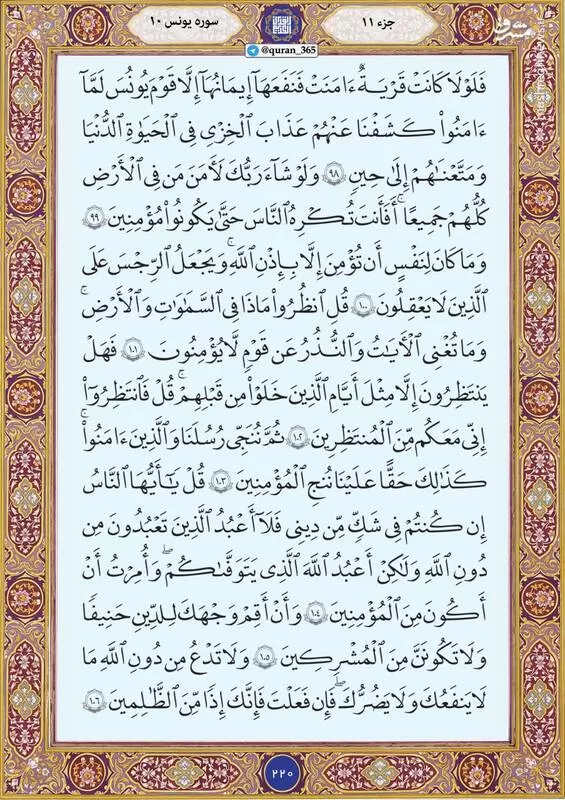 جزء ۱۱
سوره یونس ۱۰
@quran_365
مشرق
فَلَوْلَا كَانَتْ قَرْيَةٌ ءَامَنَتْ فَنَفَعَهَآ إِيمَانُهَآ إِلَّا قَوْمَ يُونُسَ لَمَّآ
ءَامَنُوا۟ كَشَفْنَا عَنْهُمْ عَذَابَ ٱلْخِزْىِ فِى ٱلْحَيَوٰةِ ٱلدُّنْيَا
وَمَتَّعْنَاهُمْ إِلَىٰ حِينٍ ۹۸ وَلَوْ شَآءَ رَبُّكَ لَأٓمَنَ مَن فِى ٱلْأَرْضِ
كُلُّهُمْ جَمِيعًا ۚ أَفَأَنتَ تُكْرِهُ ٱلنَّاسَ حَتَّىٰ يَكُونُوا۟ مُؤْمِنِينَ ۹۹
وَمَا كَانَ لِنَفْسٍ أَن تُؤْمِنَ إِلَّا بِإِذْنِ ٱللَّهِ ۚ وَيَجْعَلُ ٱلرِّجْسَ عَلَى
ٱلَّذِينَ لَا يَعْقِلُونَ ۱۰۰ قُلِ ٱنظُرُوا۟ مَاذَا فِى ٱلسَّمَٰوَٰتِ وَٱلْأَرْضِ ۚ
وَمَا تُغْنِى ٱلْأَيَٰتُ وَٱلنُّذُرُ عَن قَوْمٍ لَّا يُؤْمِنُونَ ۱۰۱ فَهَلْ
يَنتَظِرُونَ إِلَّا مِثْلَ أَيَّامِ ٱلَّذِينَ خَلَوْا۟ مِن قَبْلِهِمْ ۚ قُلْ فَٱنتَظِرُوٓا۟
إِنِّى مَعَكُم مِّنَ ٱلْمُنتَظِرِينَ ۱۰۲ ثُمَّ نُنَجِّى رُسُلَنَا وَٱلَّذِينَ ءَامَنُوا۟ ۚ
كَذَٰلِكَ حَقًّا عَلَيْنَا نُنجِ ٱلْمُؤْمِنِينَ ۱۰۳ قُلْ يَٰٓأَيُّهَا ٱلنَّاسُ
إِن كُنتُمْ فِى شَكٍّ مِّن دِينِى فَلَآ أَعْبُدُ ٱلَّذِينَ تَعْبُدُونَ مِن
دُونِ ٱللَّهِ وَلَٰكِنْ أَعْبُدُ ٱللَّهَ ٱلَّذِى يَتَوَفَّىٰكُمْ ۖ وَأُمِرْتُ أَنْ
أَكُونَ مِنَ ٱلْمُؤْمِنِينَ ۱۰۴ وَأَنْ أَقِمْ وَجْهَكَ لِلدِّينِ حَنِيفًا
وَلَا تَكُونَنَّ مِنَ ٱلْمُشْرِكِينَ ۱۰۵ وَلَا تَدْعُ مِن دُونِ ٱللَّهِ مَا
لَا يَنفَعُكَ وَلَا يَضُرُّكَ ۖ فَإِن فَعَلْتَ فَإِنَّكَ إِذًا مِّنَ ٱلظَّٰلِمِينَ ۱۰۶
۲۲۰